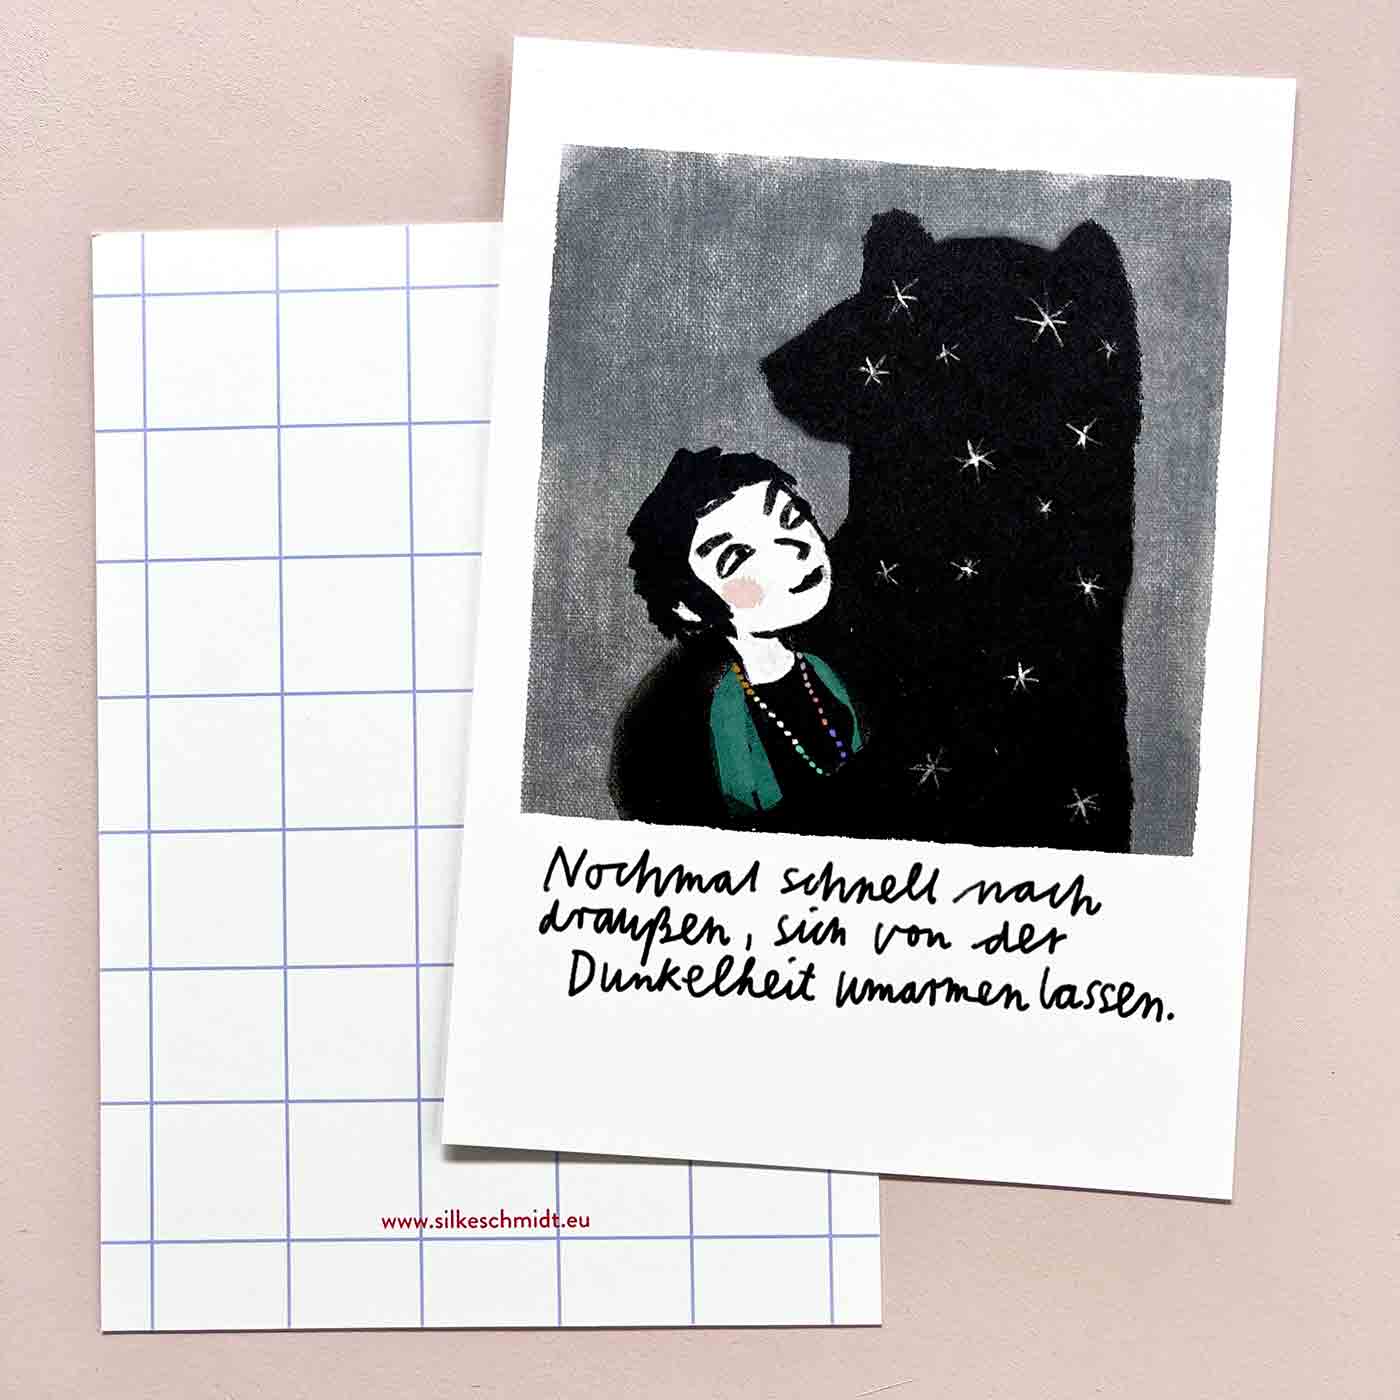 Nochmal schnell nach
draußen, sich von der
Dunkelheit umarmen lassen.
www.silkeschmidt.eu